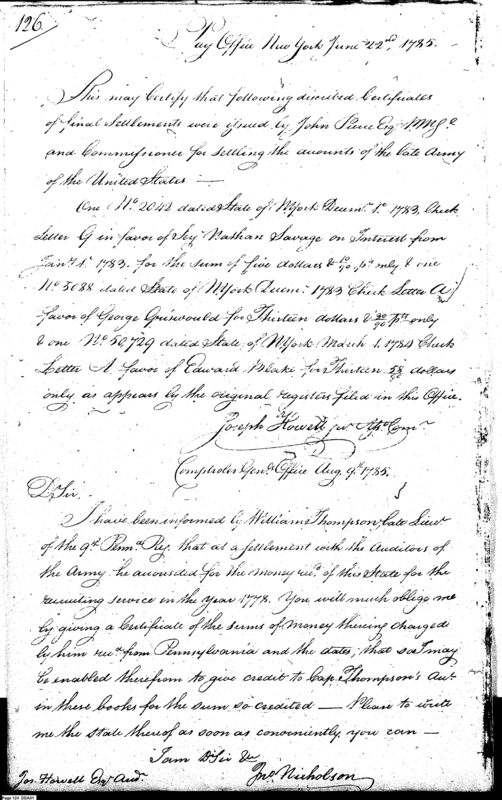 126
Pay Office New York June 22nd, 1785.
This may Certify that following discribed Certificates
of final Settlements were issued by John Pierce Esqr P.M.G.
and Commissioner for settling the accounts of the late Army
of the United States —
One No. 2042 dated State of N York Decemr. 1st. 1783, Check
Letter G in favor of Nathan Savage on Interest from
Jany. 1st. 1783. for the sum of five dollars & only & one
No. 5088 dated State of N York Decemr. 1783 Check Letter A,
favor of George Griswould for Thirteen dollars & 30/90 only
& one No. 50,729 dated State of N York March 1. 1784 Check
Letter A. favor of Edward Blake for Thirteen 58 dollars
only as appears by the original registers filed in this Office.
Joseph Howell junr. Comr.
Comptroler Genl. Office Augt. 9th. 1785.
Dr Sir,
I have been informed by William Thompson late Lieut
of the 9th. Penna. Reg. that at a settlement with the Auditors of
the Army he accounted for the money recd. of this State for the
recruiting service in the year 1778. You will much oblige me
by giving a Certificate of the sums of money therein charged
by him recd. from Pennsylvania and the dates, that so I may
be enabled therefrom to give credit to Cap. Thompson's Acct
in these books for the sum so credited — Please to write
me the state thereof as soon as conveniently you can —
I am Dr Sir &c
Jos. Howell Esqr Audr. Jno. Nicholson